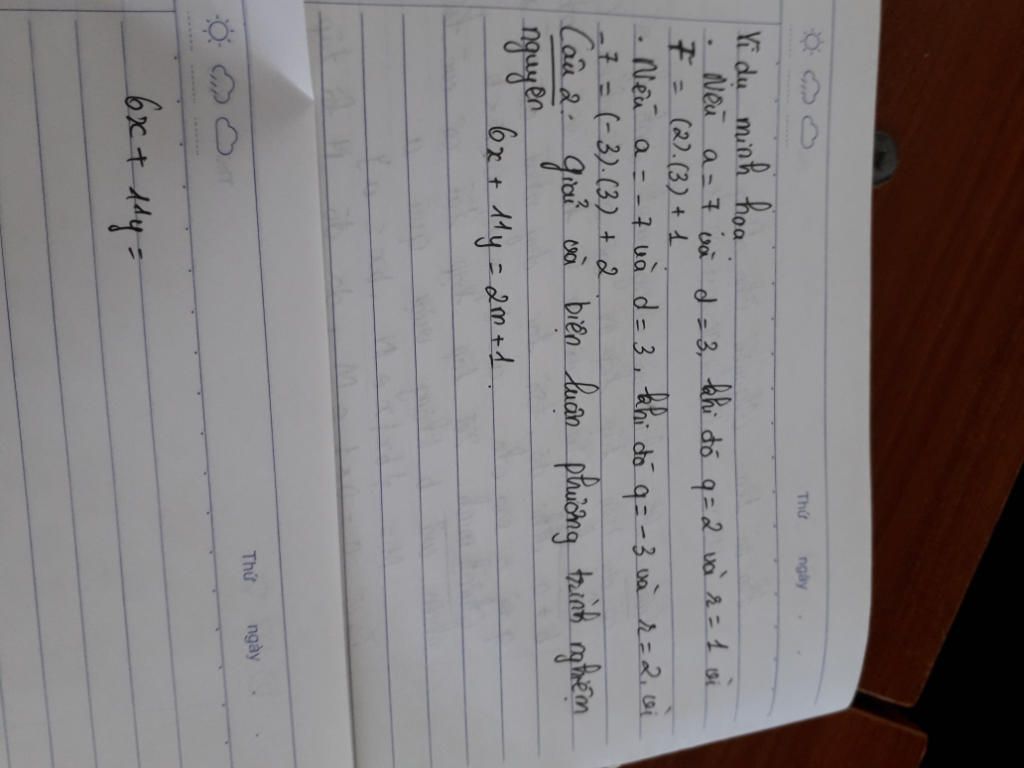 Thứ ngày
Ví dụ minh hoạ
. Nếu a = 7 và d = 3, khi đó q = 2 và r = 1 vì
7 = (2).(3) + 1
. Nếu a = -7 và d = 3, khi đó q = -3 và r = 2, vì
-7 = (-3).(3) + 2
Câu 2: giải và biện luận phương trình nghiệm
nguyên
6x + 11y = 2m + 1.
Thứ ngày
6x + 11y =